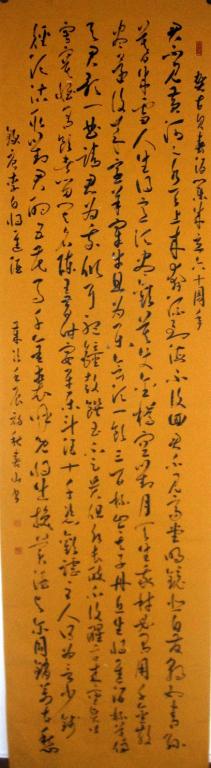 六十周年
君不见黄河之水天上来奔流到海不复回君不见高堂明镜悲白发朝如青丝
暮成雪人生得意须尽欢莫使金樽空对月天生我材必有用千金散
尽还复来烹羊宰牛且为乐会须一饮三百杯岑夫子丹丘生将进酒杯莫停
与君歌一曲请君为我倾耳听钟鼓馔玉不足贵但愿长醉不复醒古来圣贤皆
寂寞惟有饮者留其名陈王昔时宴平乐斗酒十千恣欢谑主人何为言少钱
径须沽取对君酌五花马千金裘呼儿将出换美酒与尔同销万古愁
李白将进酒 壬辰初秋春山书